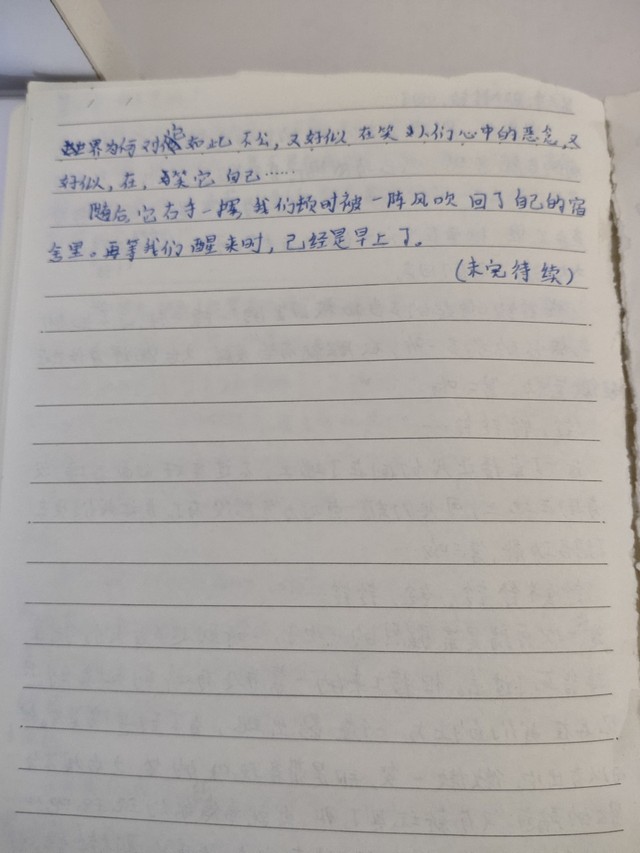 世界为何对它如此不公，又好似在笑人们心中的恶念，又
好似，在，笑它自己……
随后它右手一挥我们顿时被一阵风吹回了自己的宿
舍里。再等我们醒来时，已经是早上了。
（未完待续）